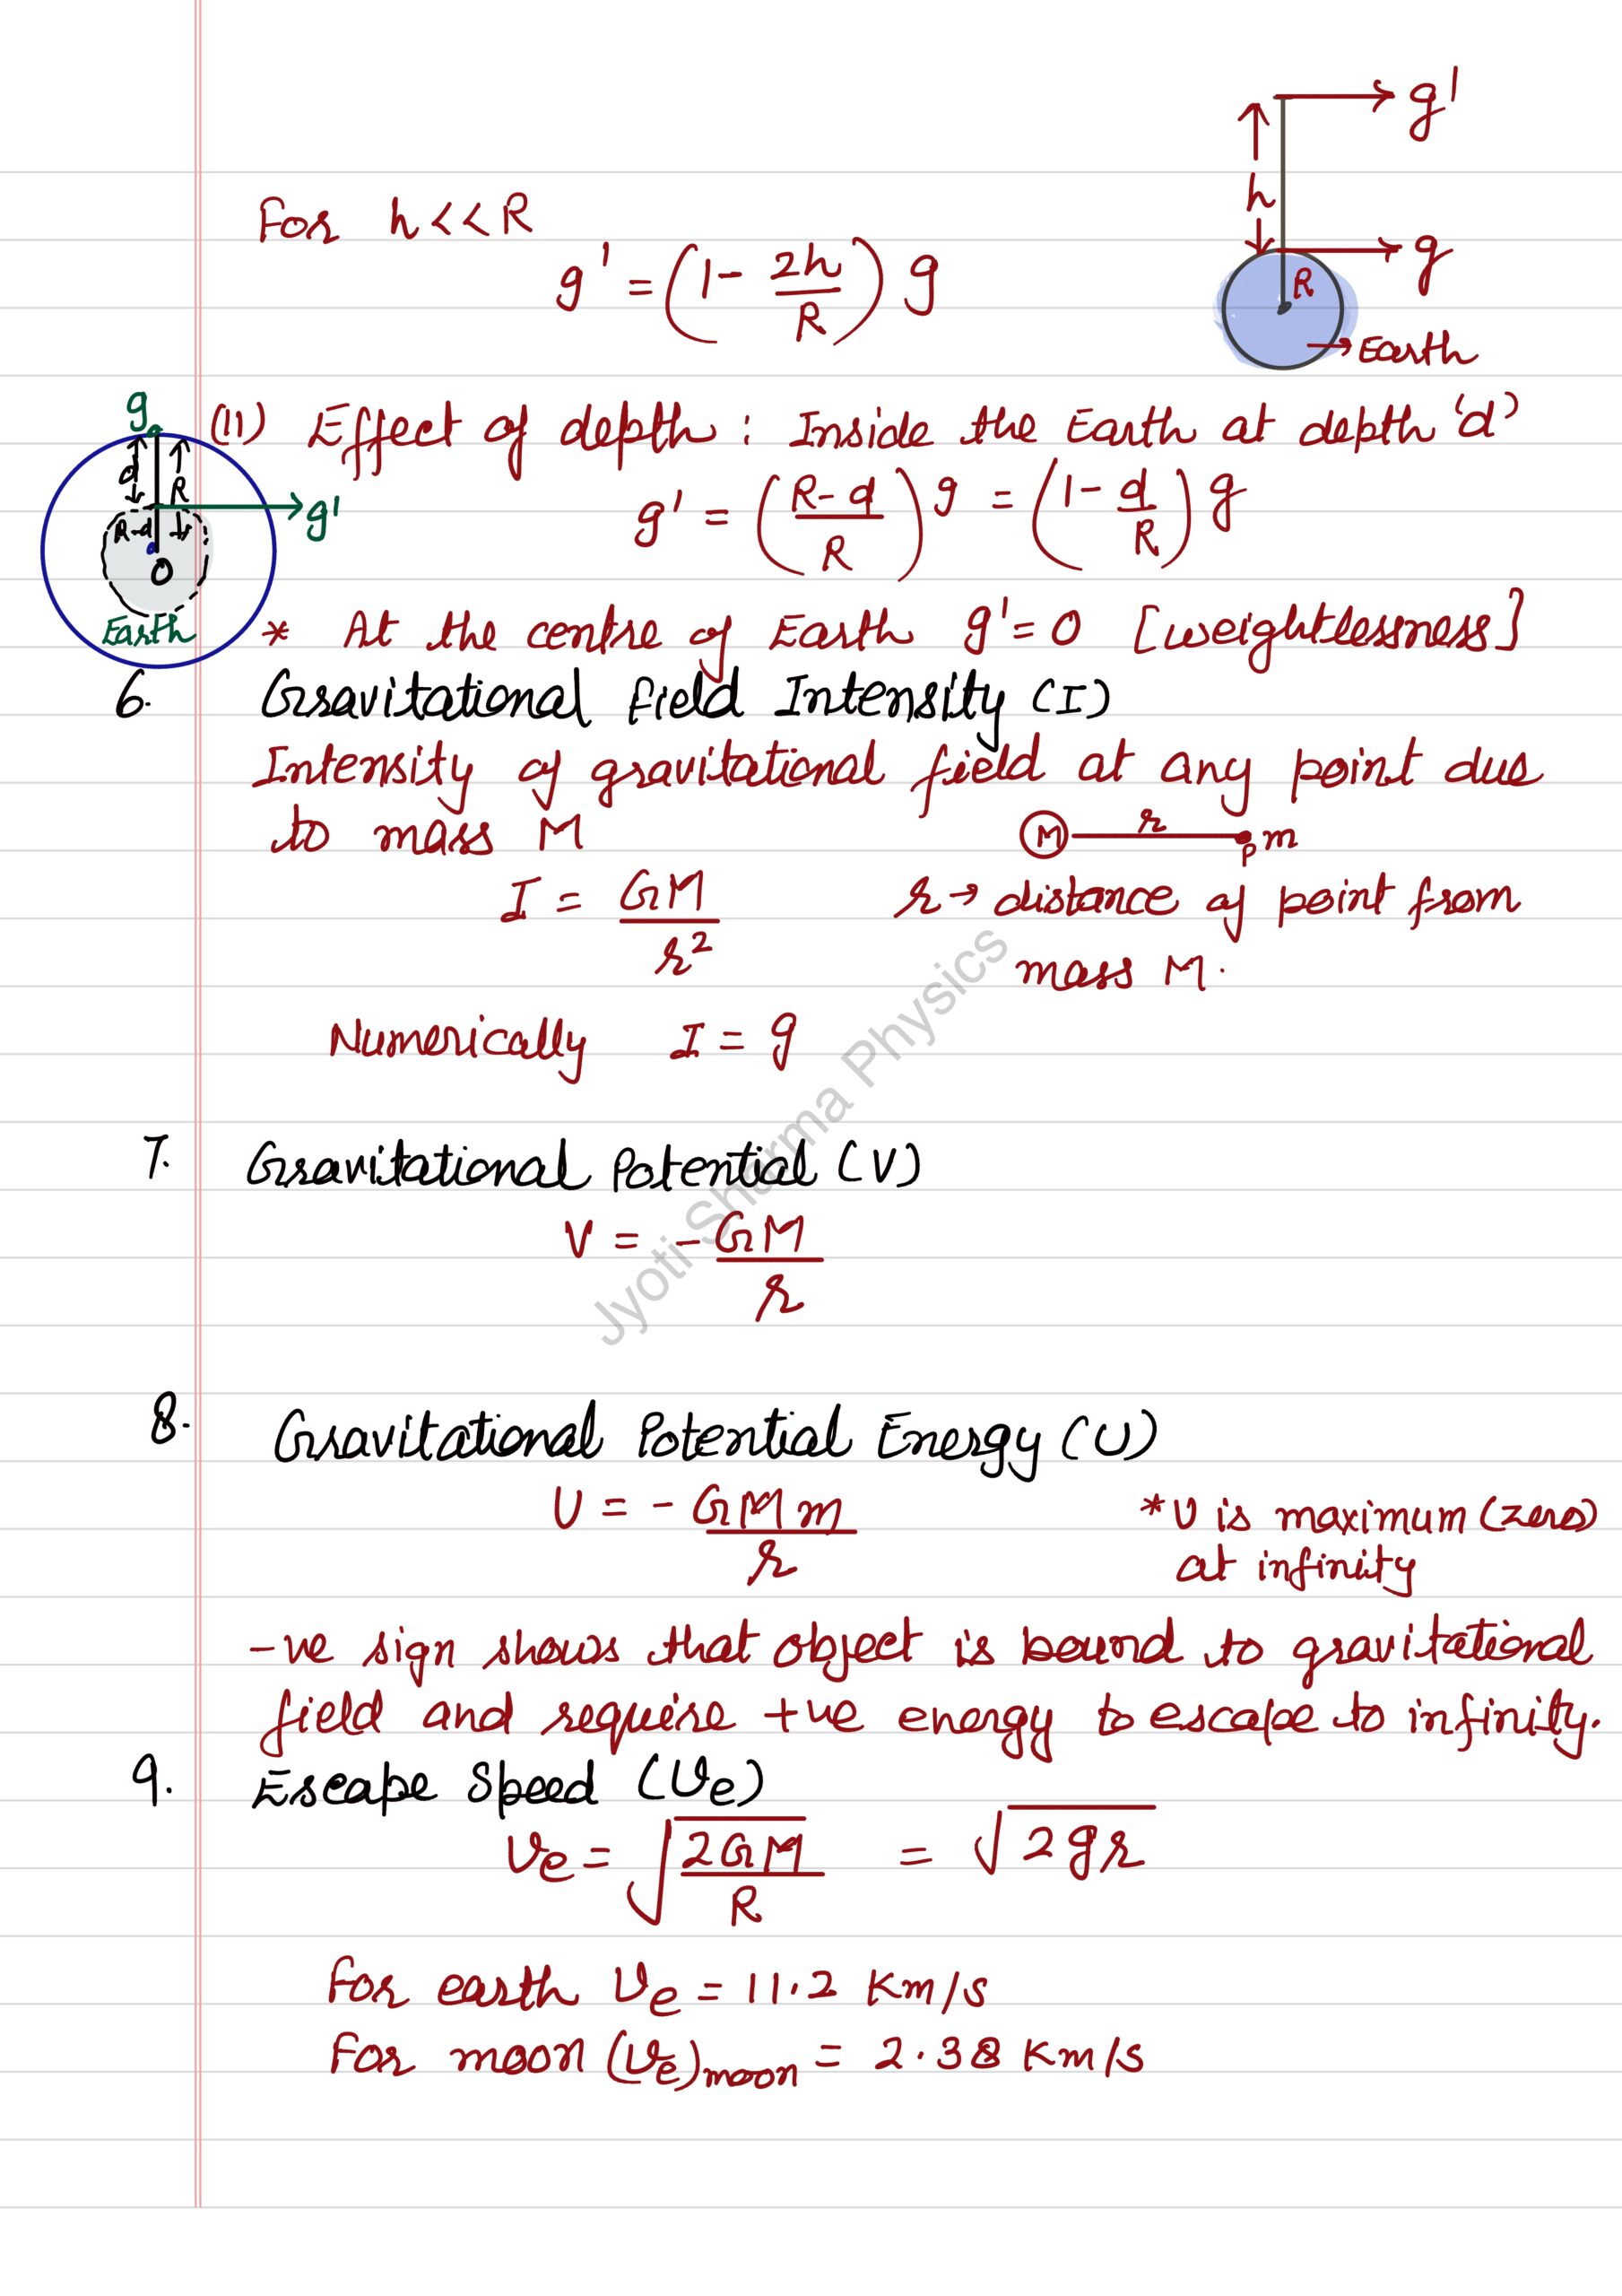 g'
h
For h<<R
g' = (1 - 2h/R) g
g
R
→ Earth
g
(11) Effect of depth : Inside the Earth at depth 'd'
d
R
g'
R-d
O
Earth
g' = (R-d/R) g = (1 - d/R) g
* At the centre of Earth g' = 0 [weightlessness]
6. Gravitational field Intensity (I)
Intensity of gravitational field at any point due
to mass M
M r m
P
I = GM/r²
r → distance of point from
mass M.
Numerically I = g
7. Gravitational Potential (V)
V = -GM/r
8. Gravitational Potential Energy (U)
U = - GMm/r
* U is maximum (zero)
at infinity
-ve sign shows that object is bound to gravitational
field and require +ve energy to escape to infinity.
9. Escape Speed (Ve)
Ve = √2GM/R = √2gr
For earth Ve = 11.2 Km/s
For moon (Ve)moon = 2.38 Km/s
Jyoti Sharma Physics